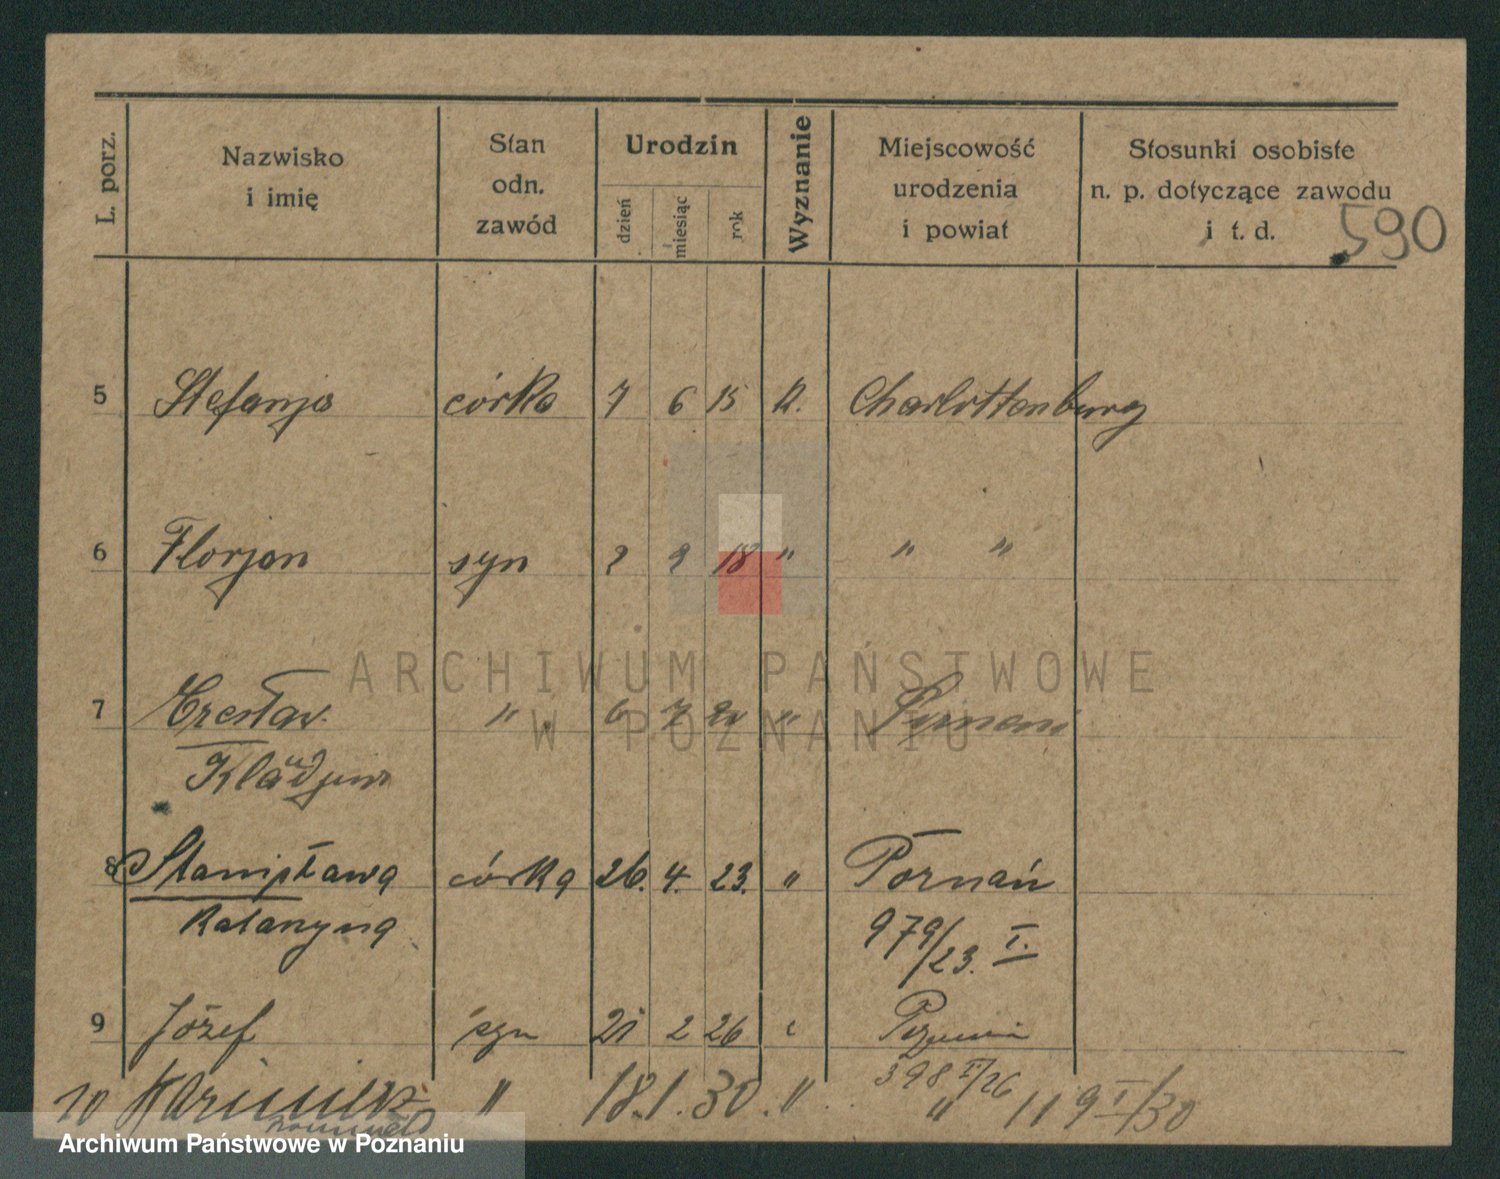 L. porz.
Nazwisko
i imię
Stan
odn.
zawód
Urodzin
dzień
miesiąc
rok
Wyznanie
Miejscowość
urodzenia
i powiat
Stosunki osobiste
n. p. dotyczące zawodu
i t. d.
590
5 Stefanja córka 7 6 15 K. Charlottenburg
6 Florjan syn 2 9 18 " " "
7 Czesław " 6 7 "
8 Stanisława córka 26. 4. 23. " Poznań
Katarzyna 979/23. I.
9 Józef syn 21 2 26 Poznań
398 I/26
10 " 18. 1. 30. " " 119 I/30
ARCHIWUM PAŃSTWOWE
W POZNANIU
Archiwum Państwowe w Poznaniu